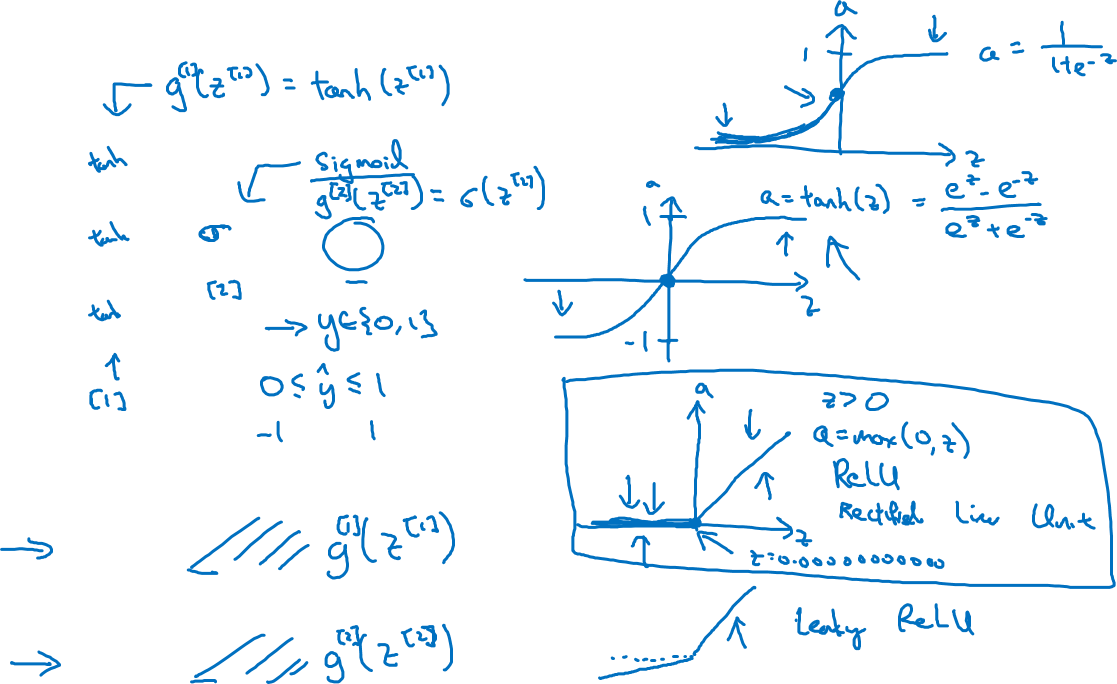 g^[1](z^[1]) = tanh(z^[1])
tanh
tanh
tanh
[1]
Sigmoid
g^[2](z^[2]) = σ(z^[2])
σ
[2]
y∈{0,1}
0 ≤ ŷ ≤ 1
-1 1
g^[1](z^[1])
g^[2](z^[2])
a
1
z
a = 1/(1+e^-z)
a
1
-1
z
a = tanh(z) = (e^z - e^-z)/(e^z + e^-z)
a
z
z>0
a = max(0,z)
ReLU
Rectified Linear Unit
z=0.00000000000
Leaky ReLU